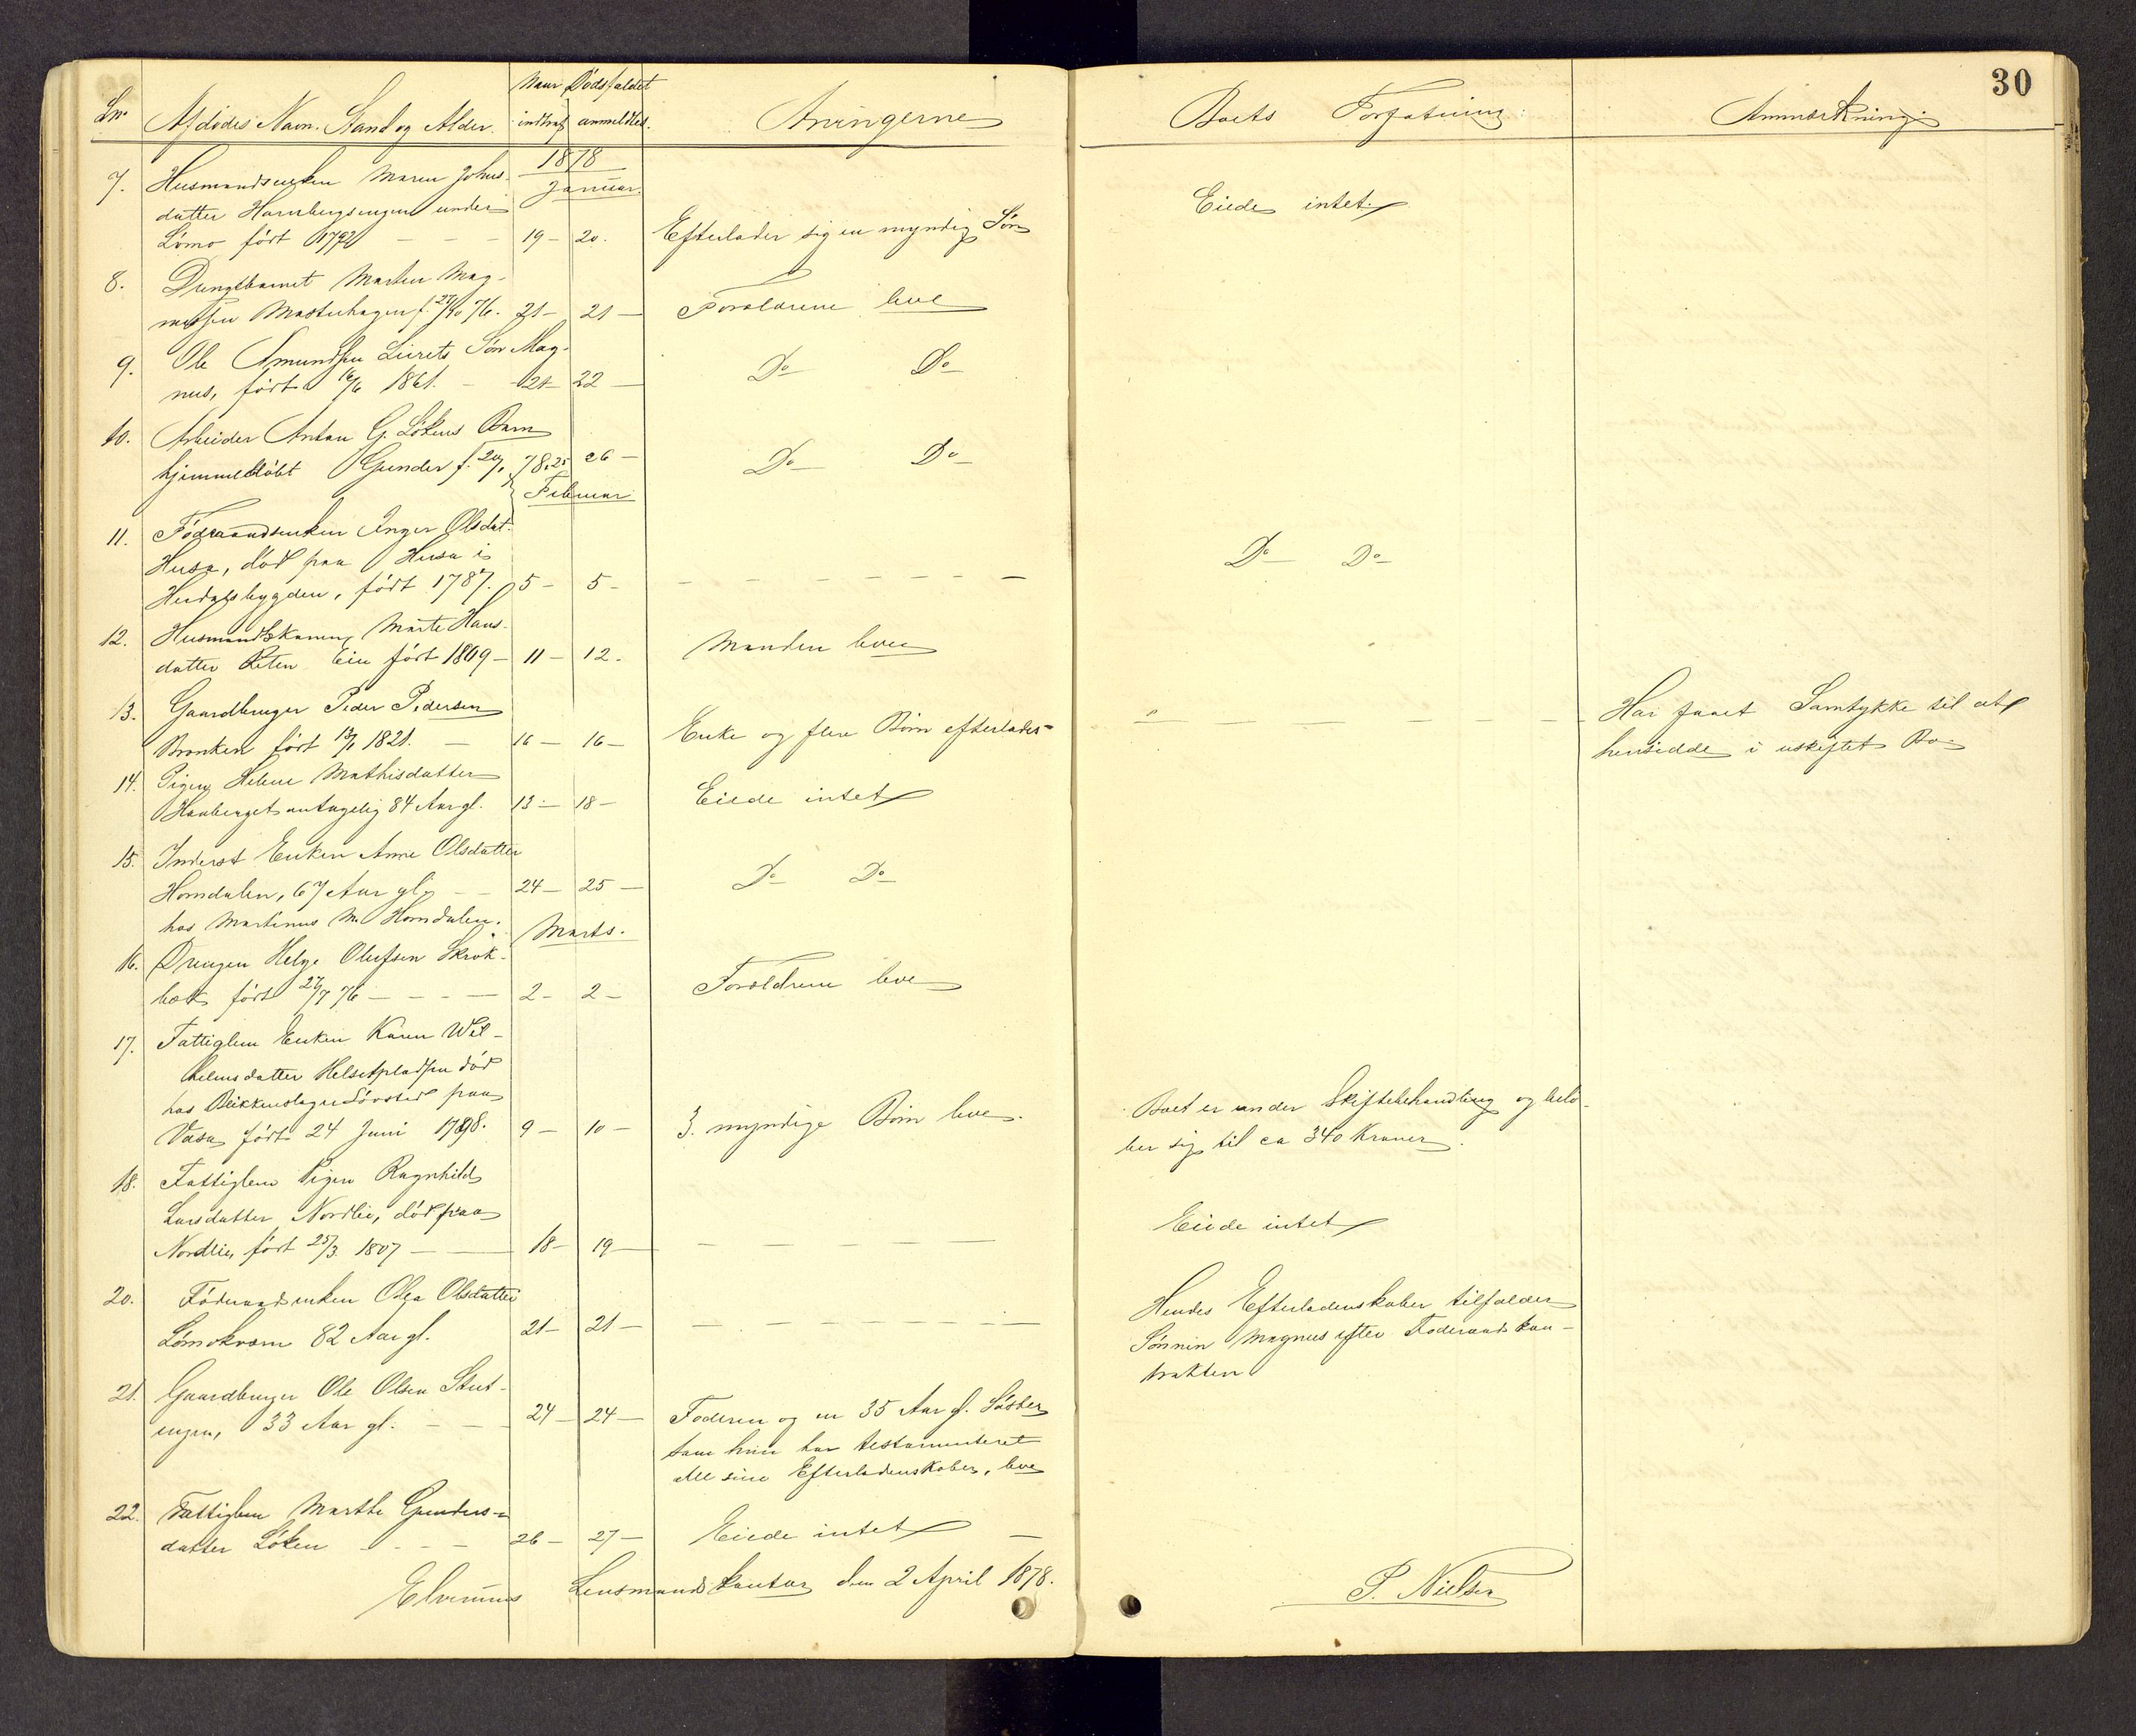 30
Lnr. Afdødes Navn. Stand og Alder. Naar Dødsfaldet indtraf anmeldtes. Arvingerne Boets Forfatning: Anmærkning:
1878
Januar.
7. Husmandsenken Maren Johns-
datter Harrbergsengen under Eiede intet.
Lömo født 1792 - - - 19 - 20. Efterlader sig en myndig Søn
8. Drengebarnet Martin Mag-
nussen Masterhagen f. 27/10 76. 21 - 21 - Forældrene leve
9. Ole Amundsen Leirets Søn Mag-
nus, født 16/6 1861. - 21 - 22 - Do Do
10. Arbeider Anton G. Løkens Barn
hjemmedøbt Gunder f. 20/1 78. 25 26 - Do Do
Februar
11. Föderaadsenken Inger Olsdat.
Husa, død paa Husa i Do Do
Herdalsbygden, født 1787. 5 - 5 - - - - - - - -
12. Husmandskonen Marte Hans-
datter Eie født 1809 - 11 - 12. Manden lever
13. Gaardbruger Peder Pedersen Har faaet Samtykke til at
Bronken født 13/1 1821. - 16 - 16 - Enke og flere Børn efterlades - - - - - - hensidde i uskiftet Bo
14. Pigen Helene Mathisdatter
Haaberget antagelig 84 Aar gl. 13 - 18 - Eiede intet
15. Inderst Enken Anne Olsdatter
Homdalen, 67 Aar gl. - - 24 - 25 - Do Do
hos Martinus M. Homdalen.
Marts.
16. Drengen Helge Olufsen Skræk-
bæk født 27/7 76 - - - - 2 - 2 - Forældrene leve
17. Fattiglem Enken Karen Wil-
helmsdatter Helsetpladsen død
hos Blikkenslager Sörsted paa Boet er under Skiftebehandling og belø-
Vasa født 24 Juni 1798. 9 - 10 - 3. myndige Børn leve. ber sig til ca 340 Kroner.
18. Fattiglem Pigen Ragnhild
Larsdatter Nordlie, død paa Eiede intet
Nordlie, født 25/3 1807 - - 18 - 19 - - - - - - -
20. Föderaadsenken Olea Olsdatter Hendes Efterladenskaber tilfalder
Lömokvern 82 Aar gl. 21 - 21 - - - - - - - Sønnen Magnus efter Föderaadskon-
trakten
21. Gaardbruger Ole Olsen Stut-
engen, 33 Aar gl. - - 24 - 24 - Faderen og en 35 Aar gl. Søster
som han har testamenteret
alle sine Efterladenskaber, leve
22. Fattiglem Marthe Gunders-
datter Løken - - - - 26 - 27 - Eiede intet -
Elverums Lensmandskontor den 2 April 1878. P. Nielsen